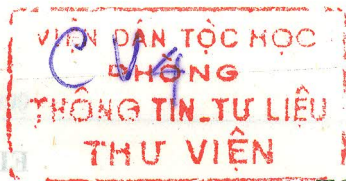 VIỆN DÂN TỘC HỌC
PHÒNG
THÔNG TIN_TƯ LIỆU
THƯ VIỆN
CV4